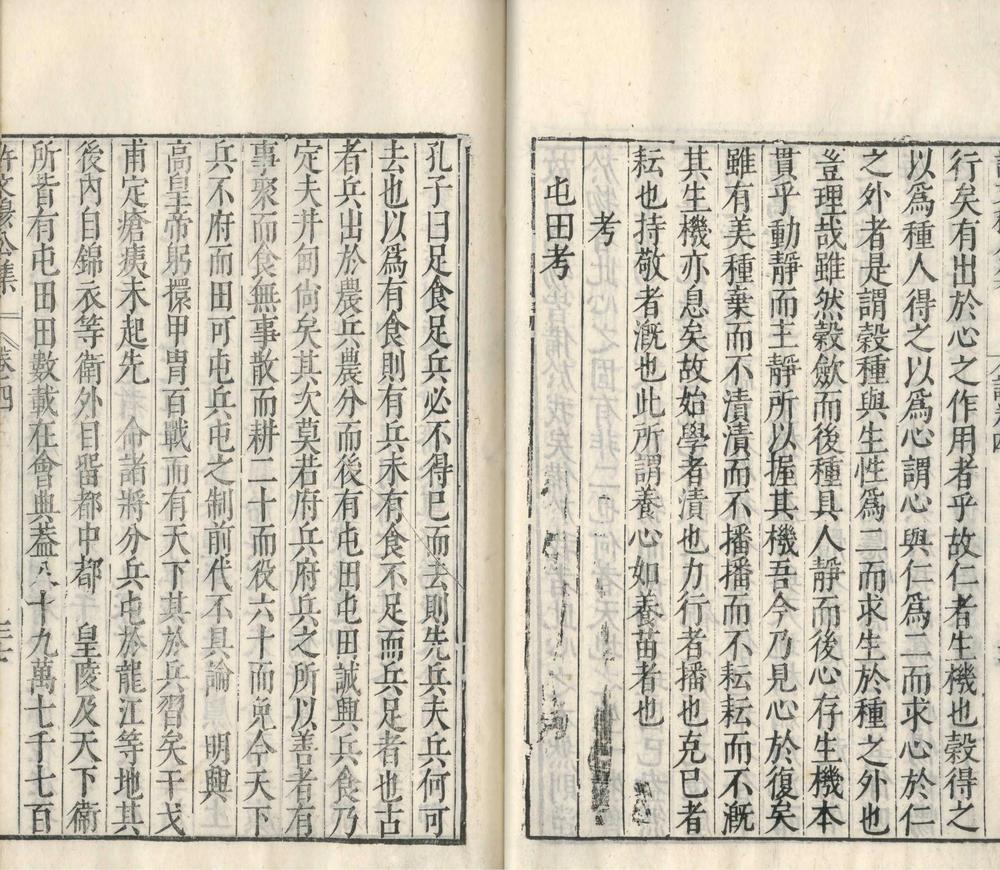 行矣有出於心之作用者乎故仁者生機也穀得之
以爲種人得之以爲心謂心與仁爲二而求心於仁
之外者是謂穀種與生性爲二而求生於種之外也
豈理哉雖然穀歛而後種具人靜而後心存生機本
貫乎動靜而主靜所以握其機吾今乃見心於復矣
雖有美種棄而不漬漬而不播播而不耘耘而不漑
其生機亦息矣故始學者漬也力行者播也克己者
耘也持敬者漑也此所謂養心如養苗者也
考
屯田考
孔子曰足食足兵必不得已而去則先兵夫兵何可
去也以爲有食則有兵未有食不足而兵足者也古
者兵出於農兵農分而後有屯田屯田誠興兵食乃
定夫井甸尙矣其次莫若府兵府兵之所以善者有
事聚而食無事散而耕二十而役六十而免今天下
兵不府而田可屯兵屯之制前代不具論 明興
高皇帝躬擐甲冑百戰而有天下其於兵習矣干戈
甫定瘡痍未起先 命諸將分兵屯於龍江等地其
後內自錦衣等衛外曰留都中都 皇陵及天下衛
所皆有屯田田數載在會典蓋八十九萬七千七百
許文穆公集 卷四